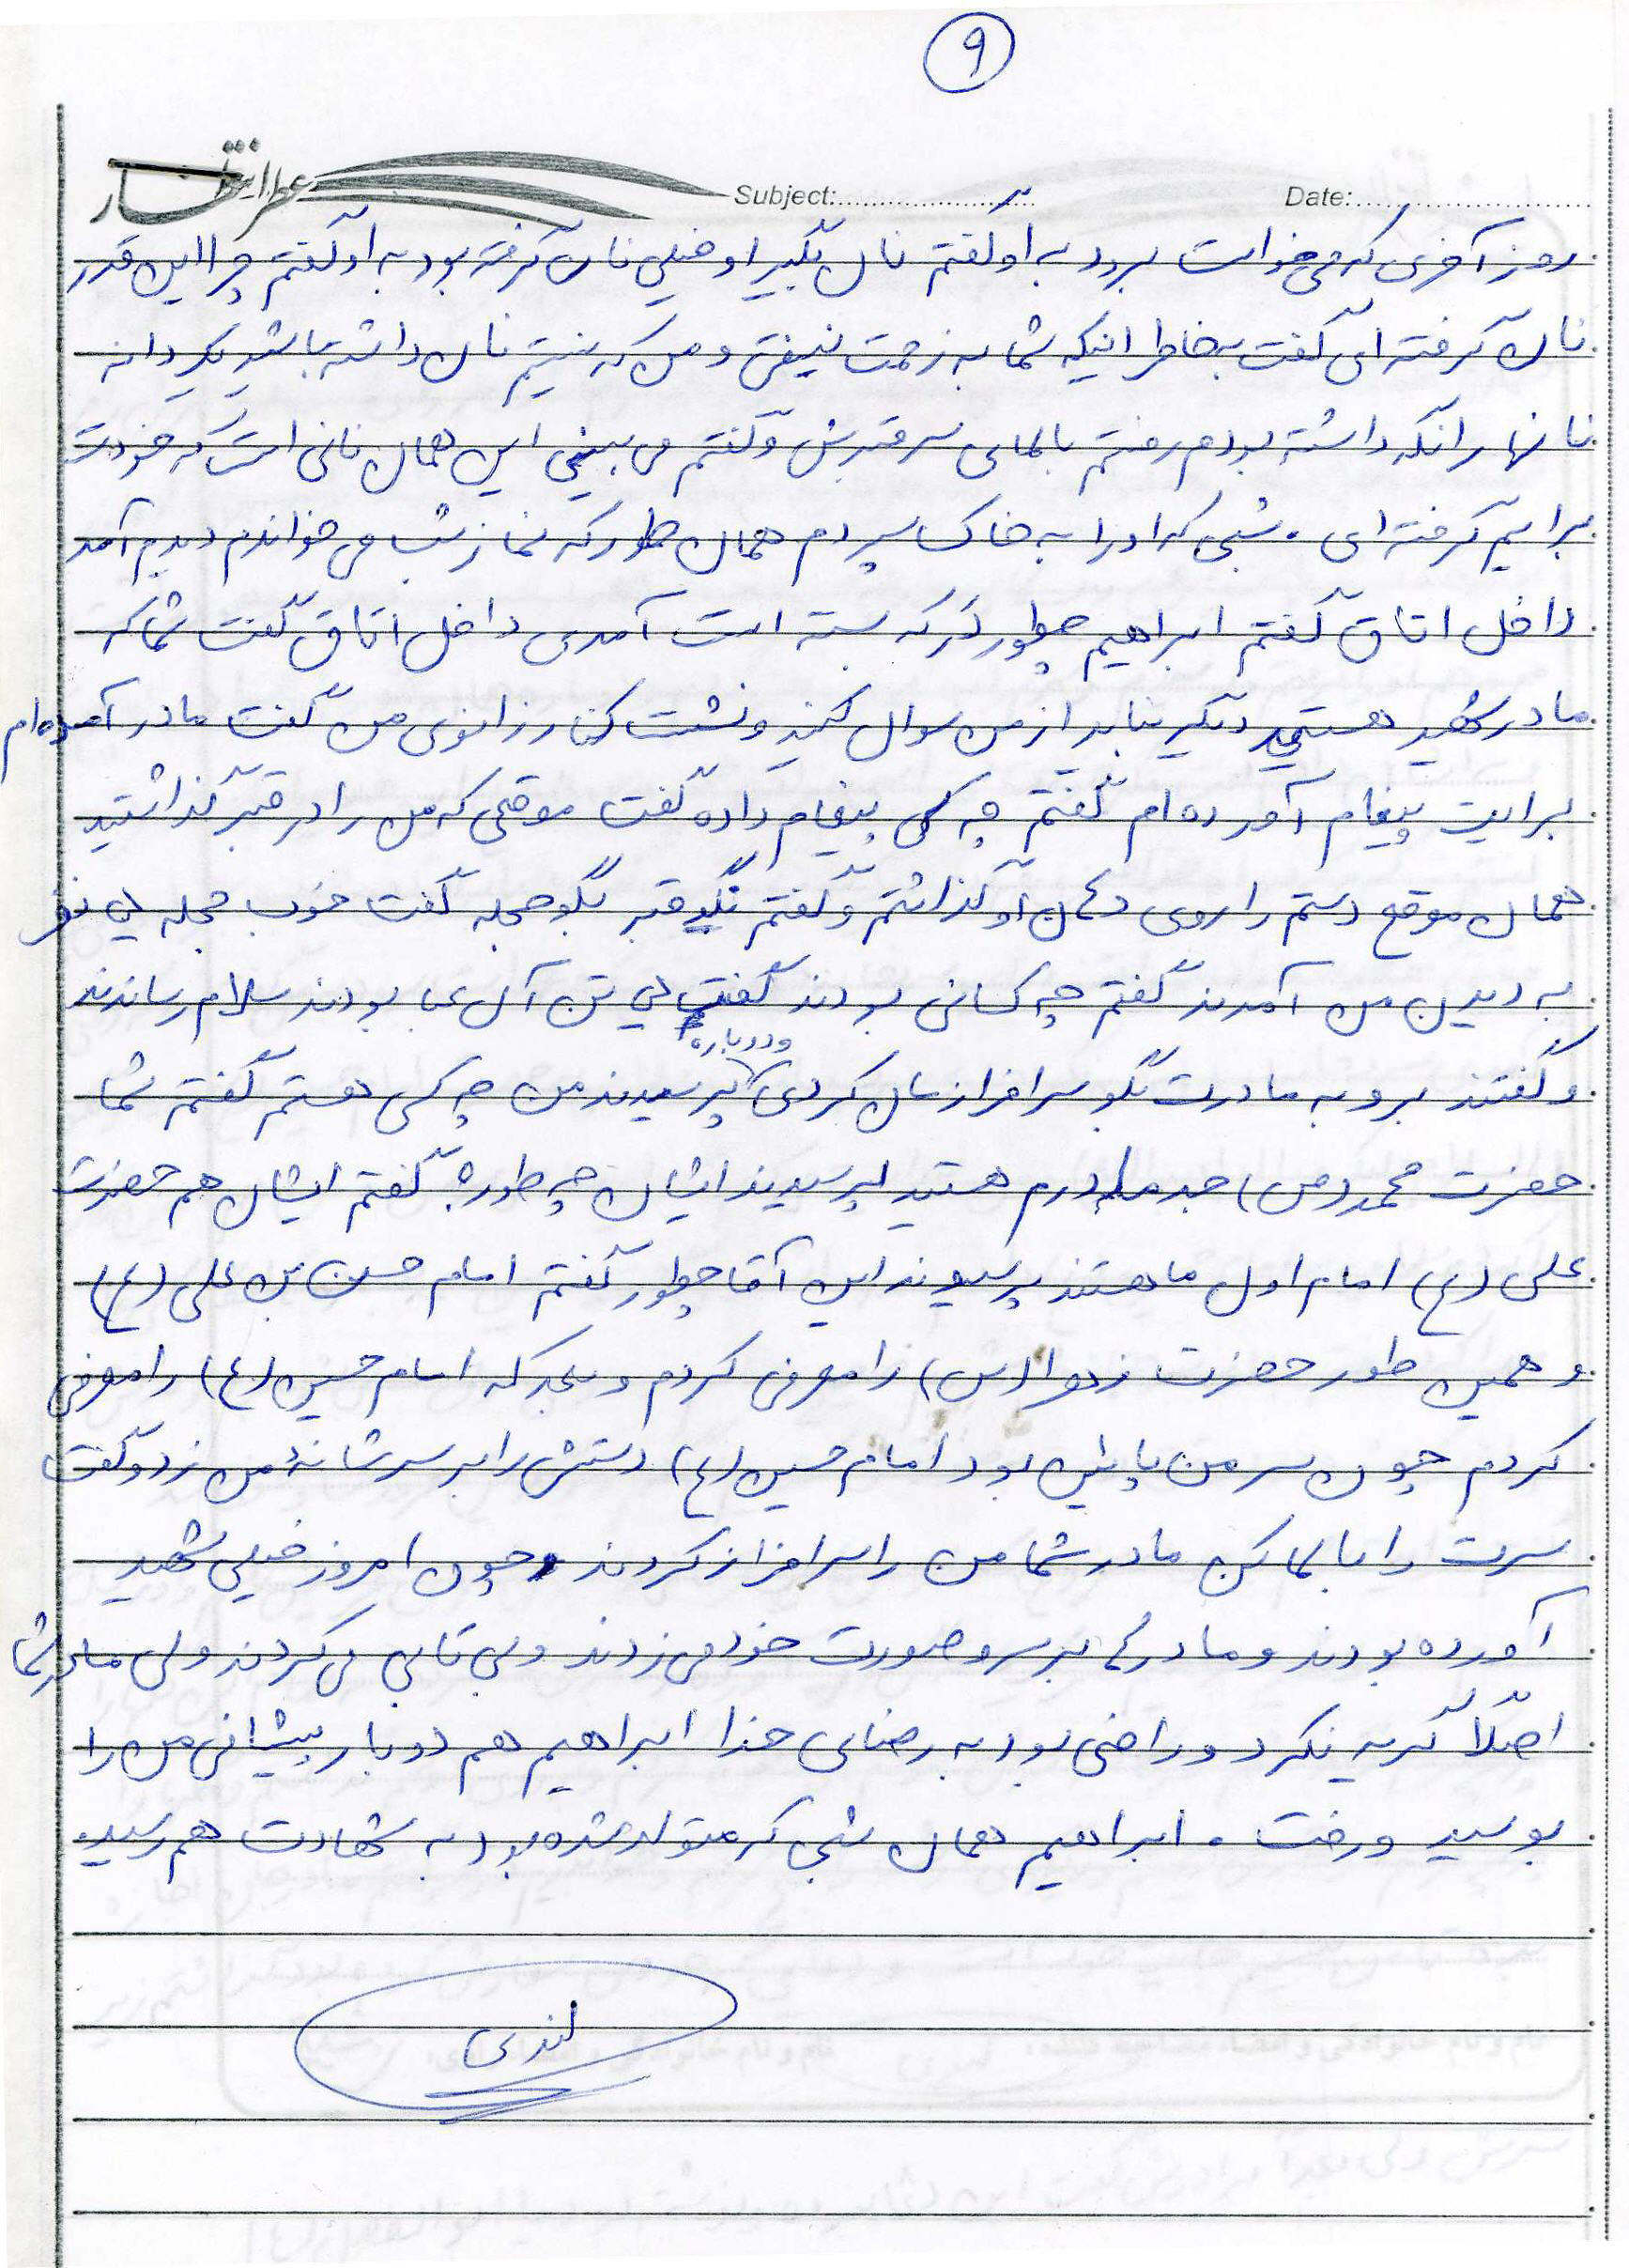 ۹
عطر انتظار
Subject:........................ Date:........................
روز آخری که می خواست برود به او گفتم نان بگیر او خیلی نان گرفته بود به او گفتم چرا این قدر
نان گرفته ای گفت به خاطر اینکه شما به زحمت نیفتی و من که نیستم نان داشته باشید یک دانه
نانها را نگه داشته بودم رفتم بالای سر قبرش و گفتم می بینی این همان نانی است که خودت
برایم گرفته ای . شبی که او را به خاک سپردم همان طور که نماز شب می خواندم دیدم آمد
داخل اتاق گفتم ابراهیم چطور در که بسته است آمدی داخل اتاق گفت شما که
مادر شهید هستید دیگر نباید از من سوال کنید و نشست کنار زانوی من گفت مادر آمده ام
برایت پیغام آورده ام گفتم چه کسی پیغام داده گفت موقعی که من را در قبر گذاشتید
همان موقع دستم را روی دهان او گذاشتم و گفتم نگو قبر بگو حجله گفت خوب حجله پنج نفر
به دیدن من آمدند گفتم چه کسانی بودند گفت پنج تن آل عبا بودند سلام رساندند
و گفتند برو به مادرت بگو سرافرازمان کردی و دوباره پرسیدند من چه کسی هستم گفتم شما
حضرت محمد (ص) جد مادرم هستید پرسیدند ایشان چه طور؟ گفتم ایشان هم حضرت
علی (ع) امام اول ما هستند پرسیدند این آقا چطور گفتم امام حسن بن علی (ع)
و همین طور حضرت زهرا (س) را معرفی کردم و بعد که امام حسین (ع) را معرفی
کردم چون سر من پایین بود امام حسین (ع) دستش را بر سر شانۀ من زد و گفت
سرت را بالا کن مادر شما من را سرافراز کردند چون امروز خیلی شهید
آورده بودند و مادرها بر سر و صورت خود می زدند و بی تابی می کردند ولی مادر شما
اصلاً گریه نکرد و راضی بود به رضای خدا ابراهیم هم دوبار پیشانی من را
بوسید و رفت . ابراهیم همان شبی که متولد شده بود به شهادت هم رسید.